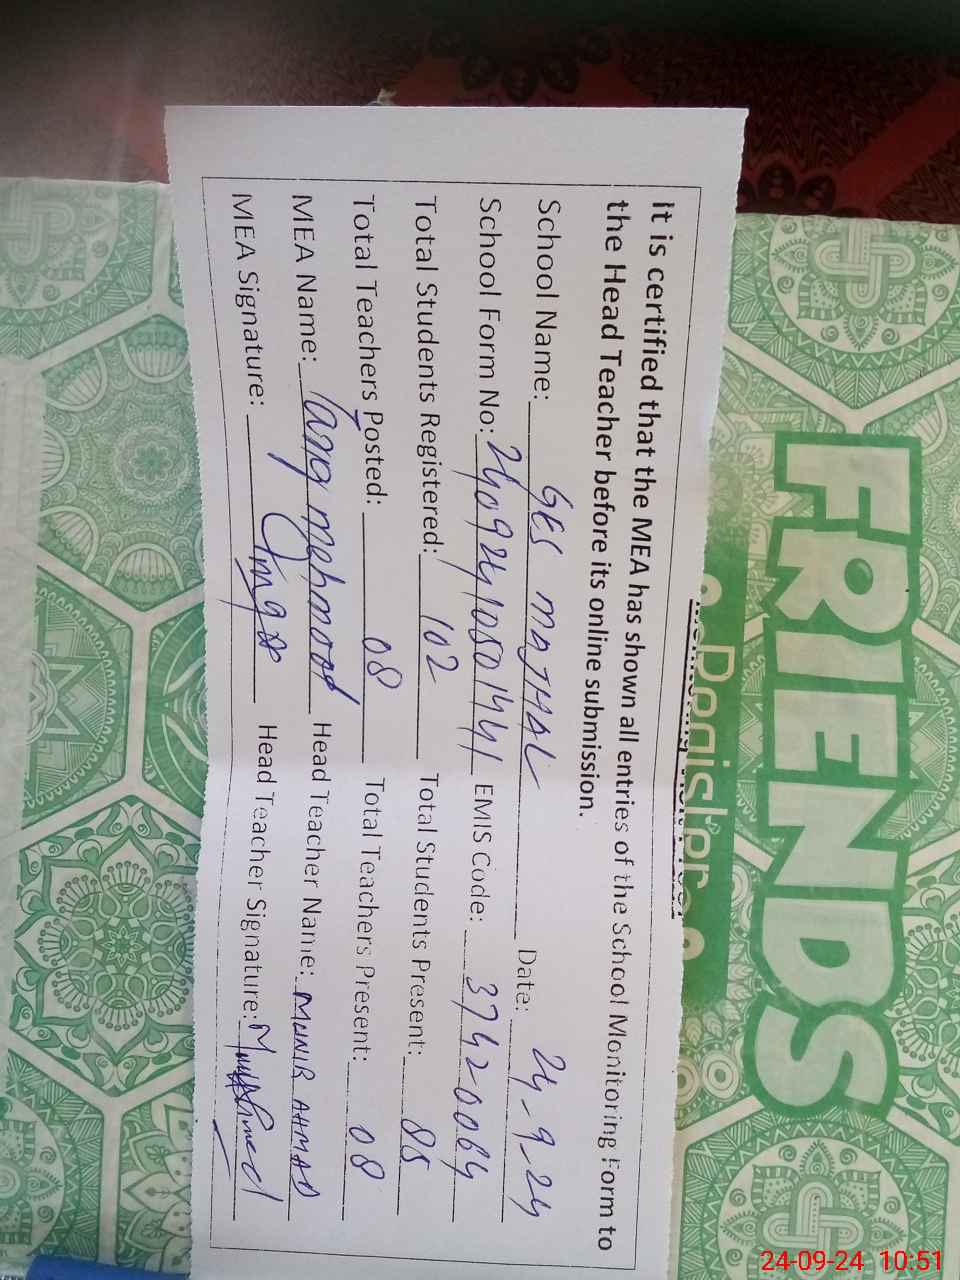 It is certified that the MEA has shown all entries of the School Monitoring Form to
the Head Teacher before its online submission.
School Name: GES MOJHAL Date: 24-9-24
School Form No: 24092410501441 EMIS Code: 37420064
Total Students Registered: 102 Total Students Present: 85
Total Teachers Posted: 08 Total Teachers Present: 08
MEA Name: Tariq mehmood Head Teacher Name: MUNIR AHMAD
MEA Signature: Head Teacher Signature:
FRIENDS
Register
24-09-24 10:51